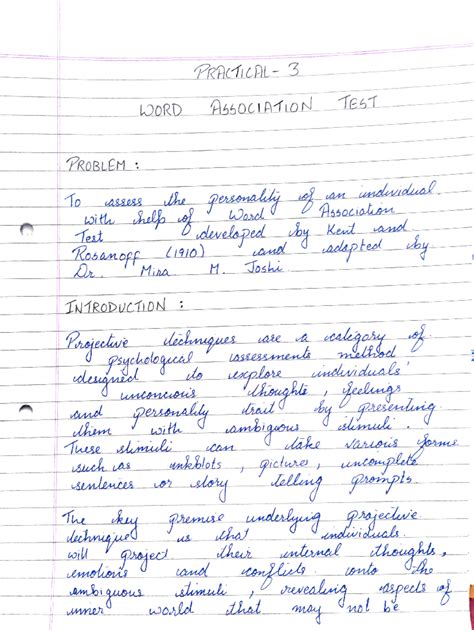 PRACTICAL - 3
WORD ASSOCIATION TEST
PROBLEM :
To assess the personality of an individual
with help of Word Association
Test developed by Kent and
Rosanoff (1910) and adapted by
Dr. Mira M. Joshi
INTRODUCTION :
Projective techniques are a category of
psychological assessments method
designed to explore individuals'
unconcious thoughts, feelings
and personality trait by presenting
them with ambiguous stimuli.
These stimuli can take various forms
such as inkblots, pictures, uncomplete
sentences or story telling prompts.
The key premise underlying projective
technique is that individuals
will project their internal thoughts,
emotions and conflicts onto the
ambiguous stimuli, revealing aspects of
inner world that may not be